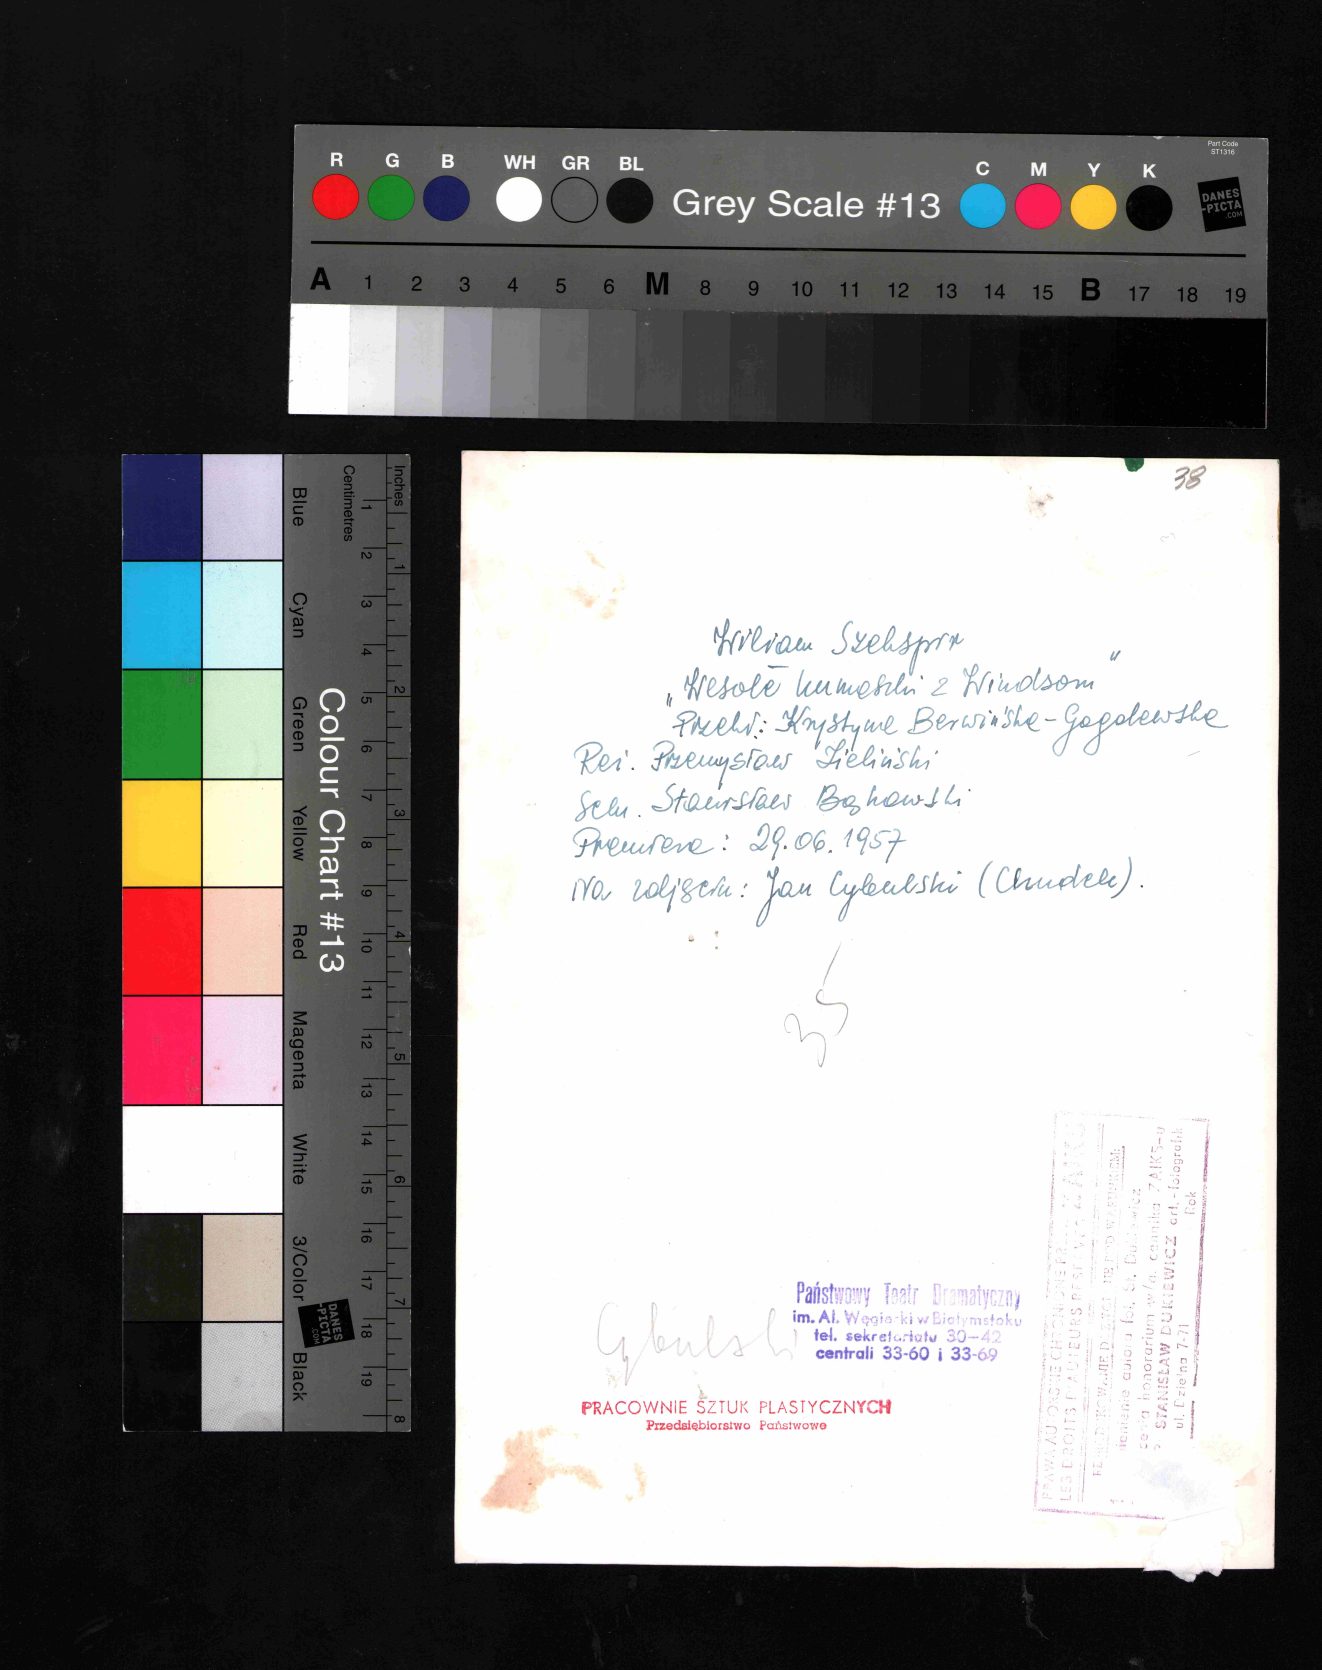 Part Code
ST1316
R G B WH GR BL
Grey Scale #13
C M Y K
DANES
-PICTA
.COM
A 1 2 3 4 5 6 M 8 9 10 11 12 13 14 15 B 17 18 19
Inches
Centimetres
1 2 3 4 5 6 7 8
1 2 3 4 5 6 7 8 9 10 11 12 13 14 15 16 17 18 19
Blue
Cyan
Green
Yellow
Red
Magenta
White
3/Color
Black
Colour Chart #13
DANES
-PICTA
.COM
38
Wiliam Szekspir
„Wesołe kumoszki z Windsoru"
Przekł.: Krystyna Berwińska-Gogolewska
Reż. Przemysław Zieliński
Scen. Stanisław Bąkowski
Premiera: 29.06.1957
Na zdjęciu: Jan Cybulski (Chudek).
35
Cybulski
Państwowy Teatr Dramatyczny
im. Al. Węgierki w Białymstoku
tel. sekretariatu 30-42
centrali 33-60 i 33-69
PRACOWNIE SZTUK PLASTYCZNYCH
Przedsiębiorstwo Państwowe
LES DROITS D'AUTEURS
honorarium w/g. cennika ZAIKS-u
STANISŁAW DUKIEWICZ art.-fotografik
ul. Dzielna 7-71
Rok